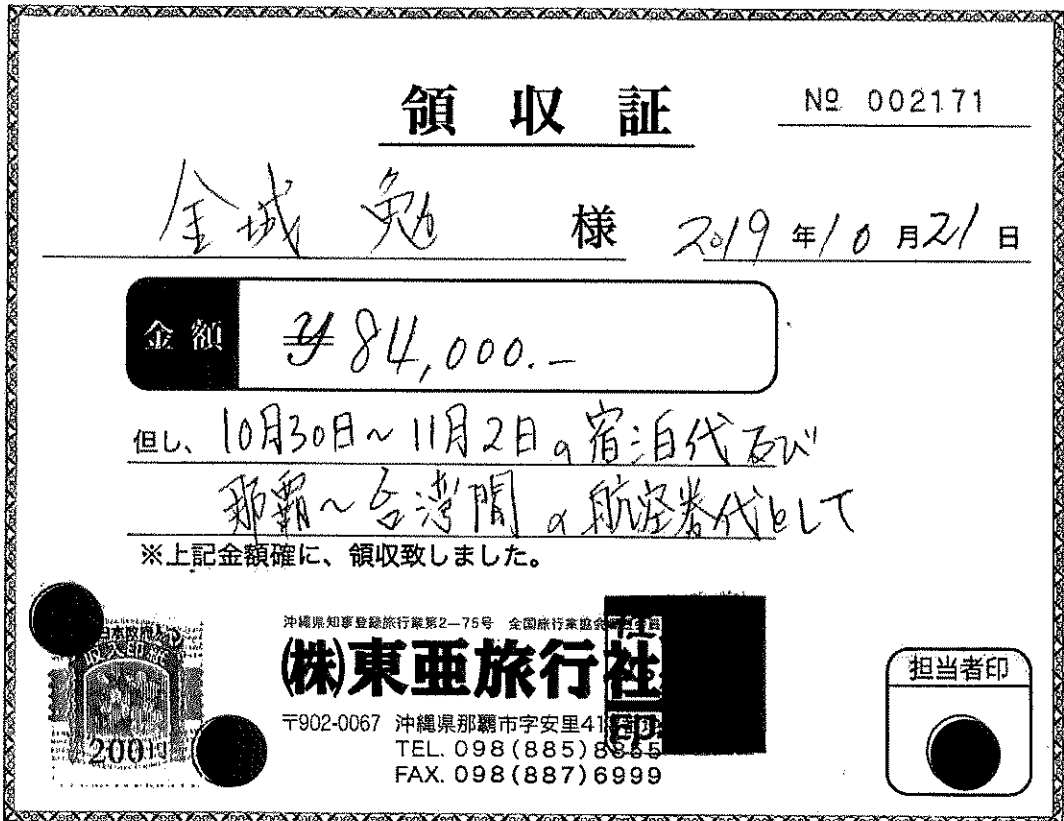 領収証
№ 002171
金城 勉 様
2019年10月21日
金額 ¥84,000.-
但し、10月30日~11月2日の宿泊代及び
那覇~台湾間の航空券代として
※上記金額確に、領収致しました。
沖縄県知事登録旅行業第2―75号 全国旅行業協会
㈱東亜旅行社
〒902-0067 沖縄県那覇市字安里41
TEL. 098(885)8
FAX. 098(887)6999
担当者印
日本政府
収入印紙
200円
社
印